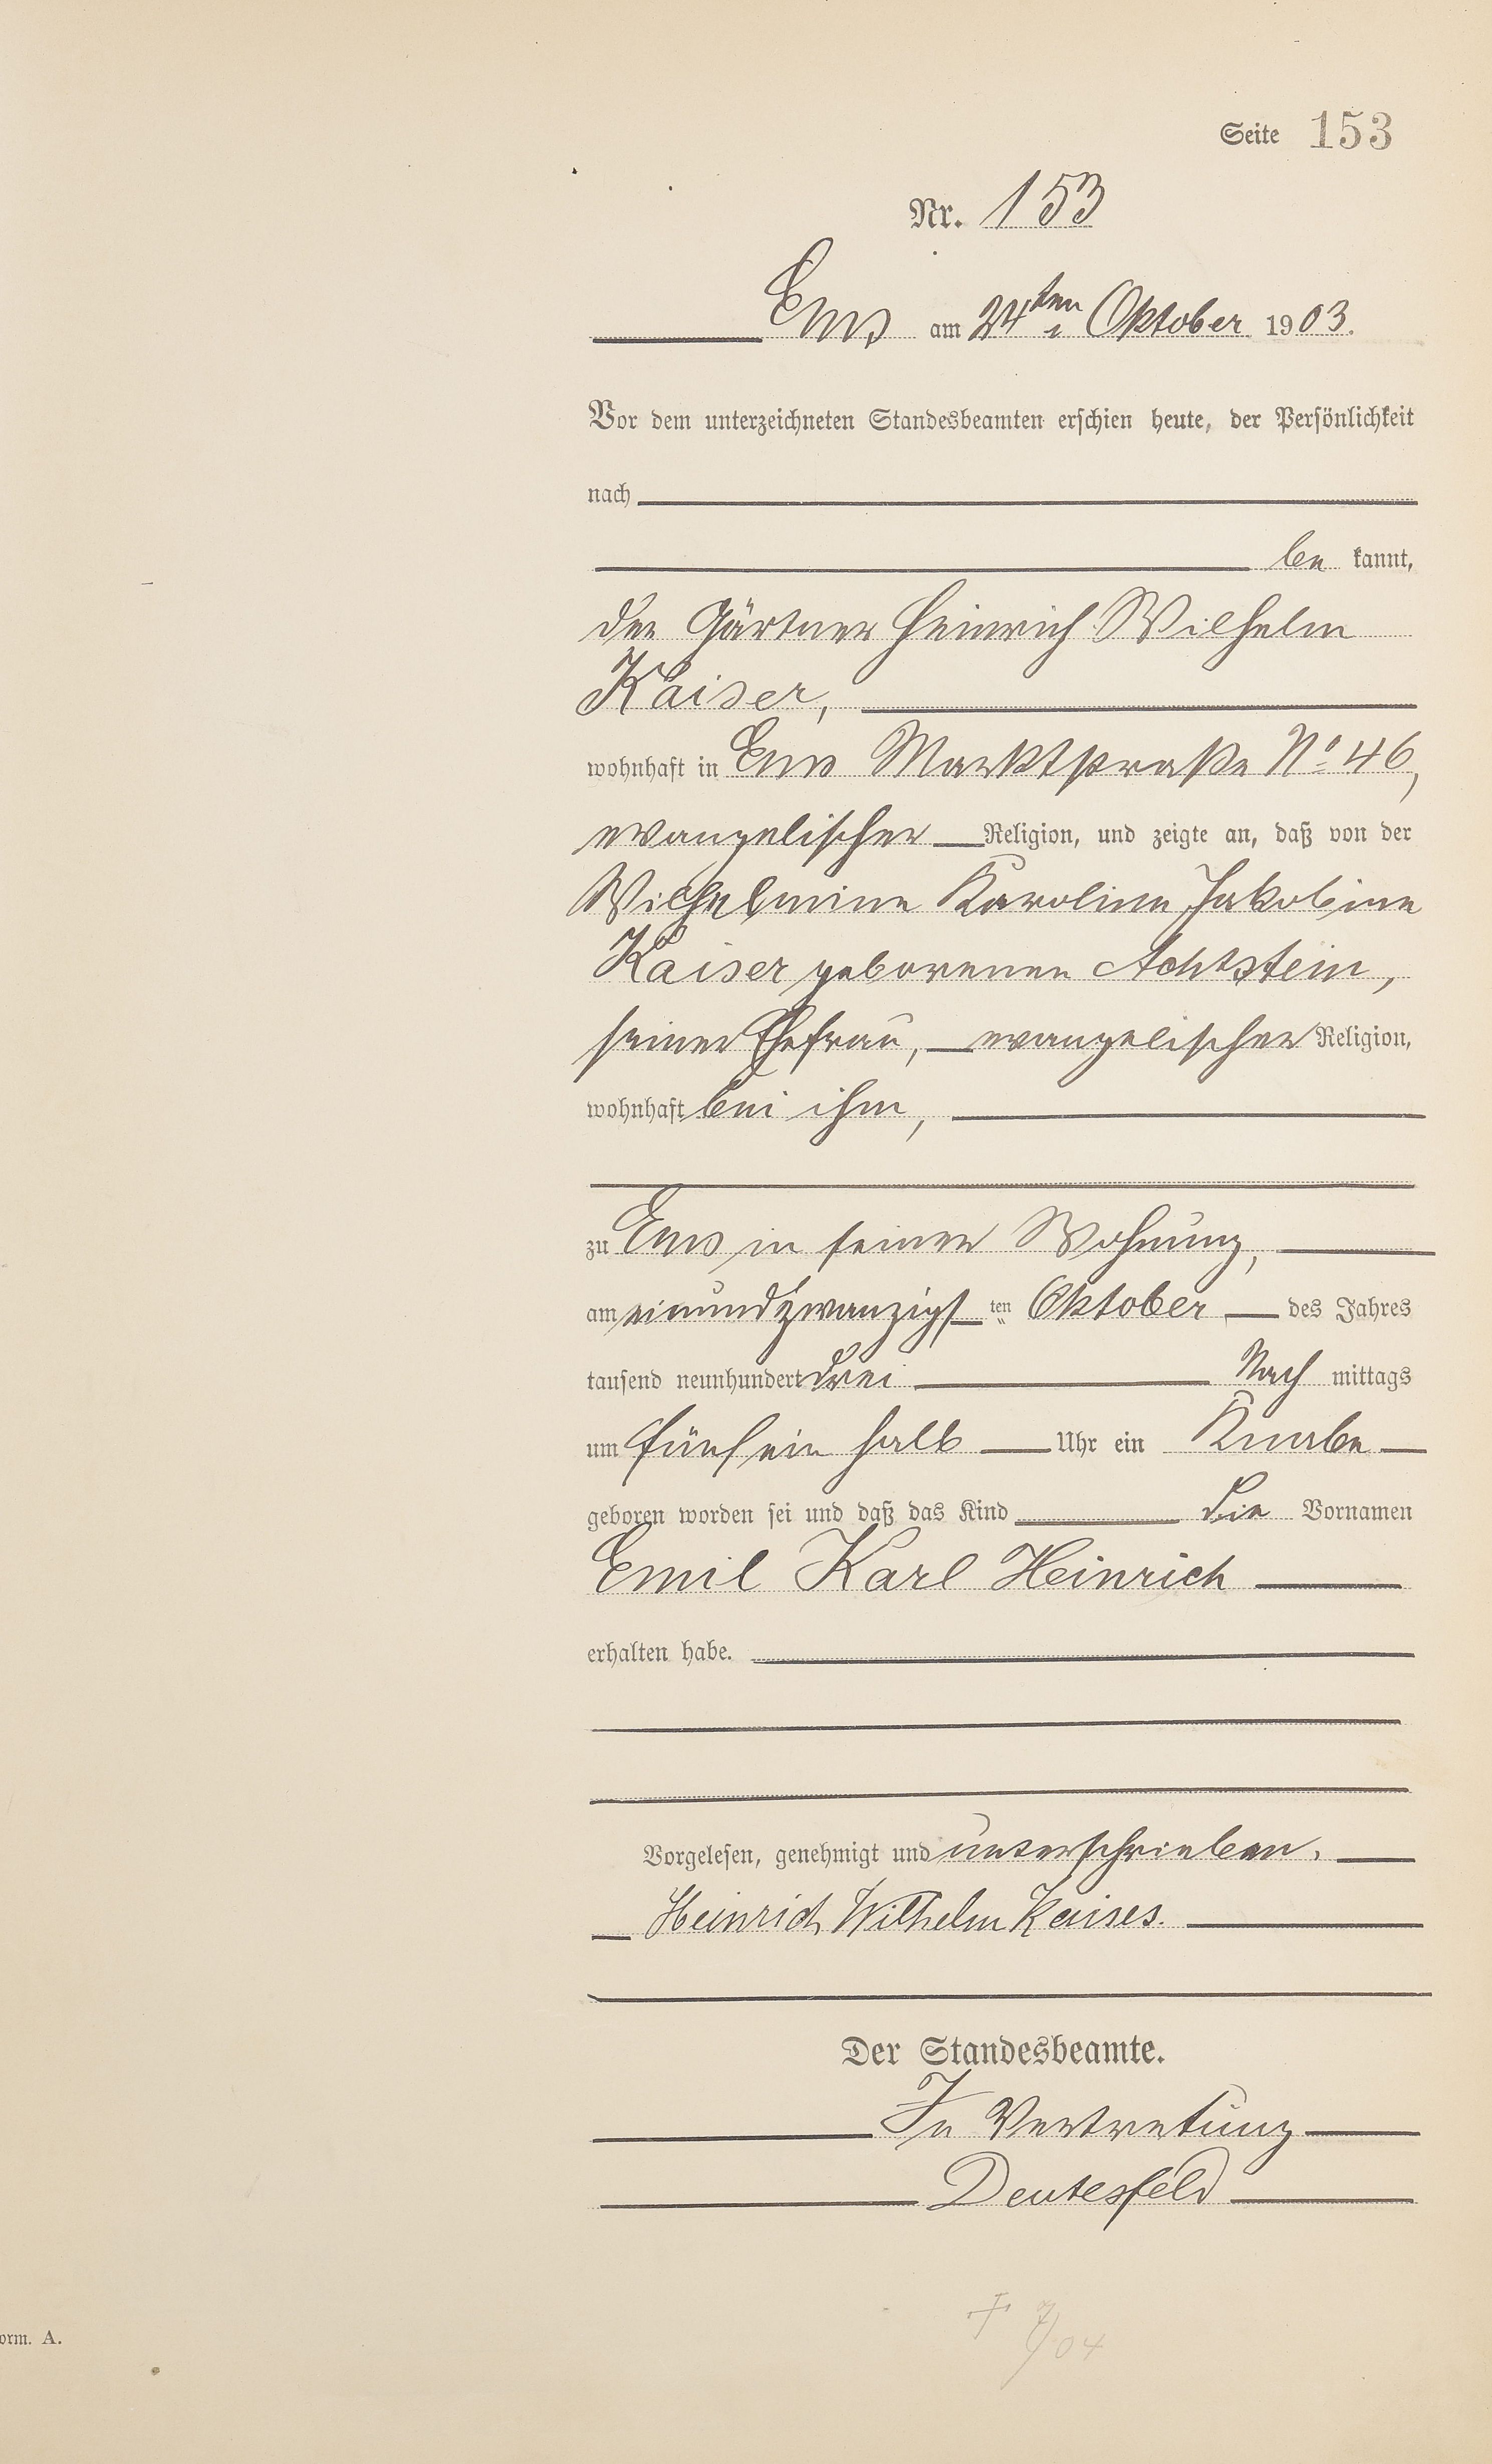 Seite 153
Nr. 153
Ems am 24ten Oktober 1903.
Vor dem unterzeichneten Standesbeamten erschien heute, der Persönlichkeit
nach
be kannt,
der Gärtner Heinrich Wilhelm
Kaiser,
wohnhaft in Ems Marktstraße No 46,
evangelischer Religion, und zeigte an, daß von der
Wilhelmine Karoline Jakobine
Kaiser geborenen Achtstein,
seiner Ehefrau, evangelischer Religion,
wohnhaft bei ihm,
zu Ems in seiner Wohnung,
am einundzwanzigsten Oktober des Jahres
tausend neunhundert drei Nach mittags
um fünf ein halb Uhr ein Knabe
geboren worden sei und daß das Kind die Vornamen
Emil Karl Heinrich
erhalten habe.
Vorgelesen, genehmigt und unterschrieben.
Heinrich Wilhelm Kaiser.
Der Standesbeamte.
In Vertretung
Deutesfeld
† 7/04
orm. A.